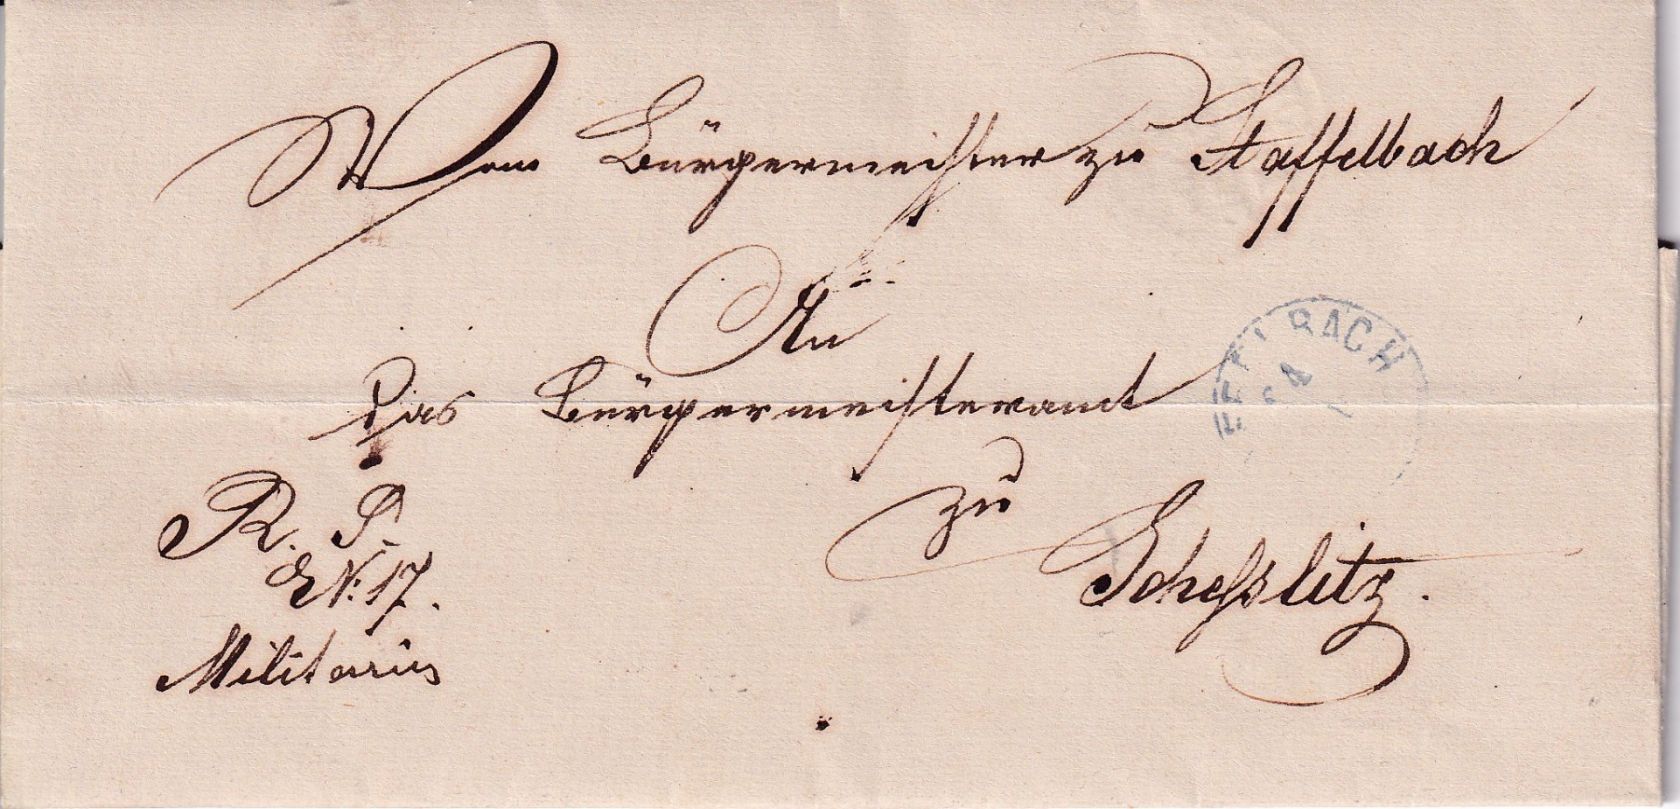 Vom Bürgermeister zu Staffelbach
An
das Bürgermeisteramt
zu
Scheßlitz.
R. S.
E N: 17.
Militaria
FFELBACH